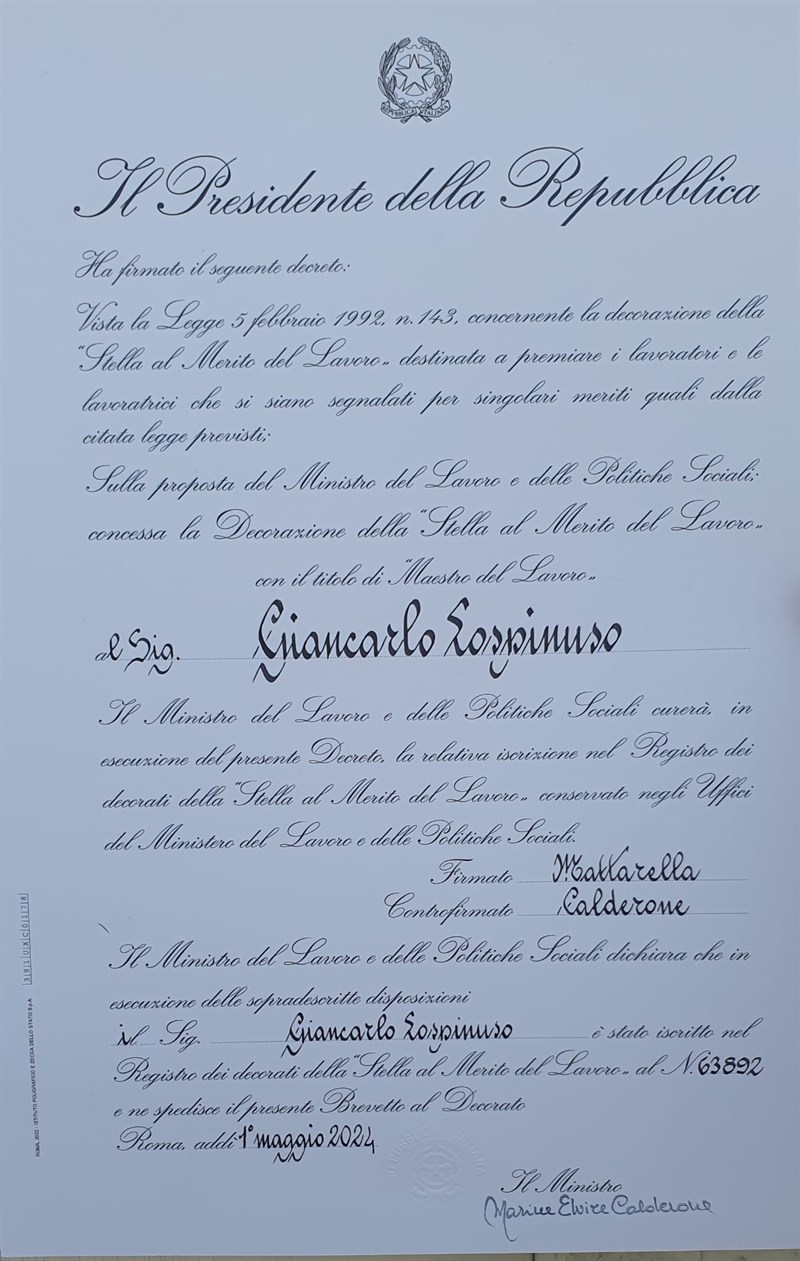 REPVBBLICA ITALIANA
Il Presidente della Repubblica
Ha firmato il seguente decreto:
Vista la Legge 5 febbraio 1992, n.143, concernente la decorazione della
"Stella al Merito del Lavoro„ destinata a premiare i lavoratori e le
lavoratrici che si siano segnalati per singolari meriti quali dalla
citata legge previsti;
Sulla proposta del Ministro del Lavoro e delle Politiche Sociali;
concessa la Decorazione della "Stella al Merito del Lavoro„
con il titolo di "Maestro del Lavoro„
al Sig. Giancarlo Lospinuso
Il Ministro del Lavoro e delle Politiche Sociali curerà, in
esecuzione del presente Decreto, la relativa iscrizione nel Registro dei
decorati della "Stella al Merito del Lavoro„ conservato negli Uffici
del Ministero del Lavoro e delle Politiche Sociali.
Firmato Mattarella
Controfirmato Calderone
Il Ministro del Lavoro e delle Politiche Sociali dichiara che in
esecuzione delle sopradescritte disposizioni
il Sig. Giancarlo Lospinuso è stato iscritto nel
Registro dei decorati della "Stella al Merito del Lavoro„ al N. 63892
e ne spedisce il presente Brevetto al Decorato
Roma, addì 1° maggio 2024
Il Ministro
Marina Elvira Calderone
ROMA, 2022 - ISTITUTO POLIGRAFICO E ZECCA DELLO STATO S.p.A.